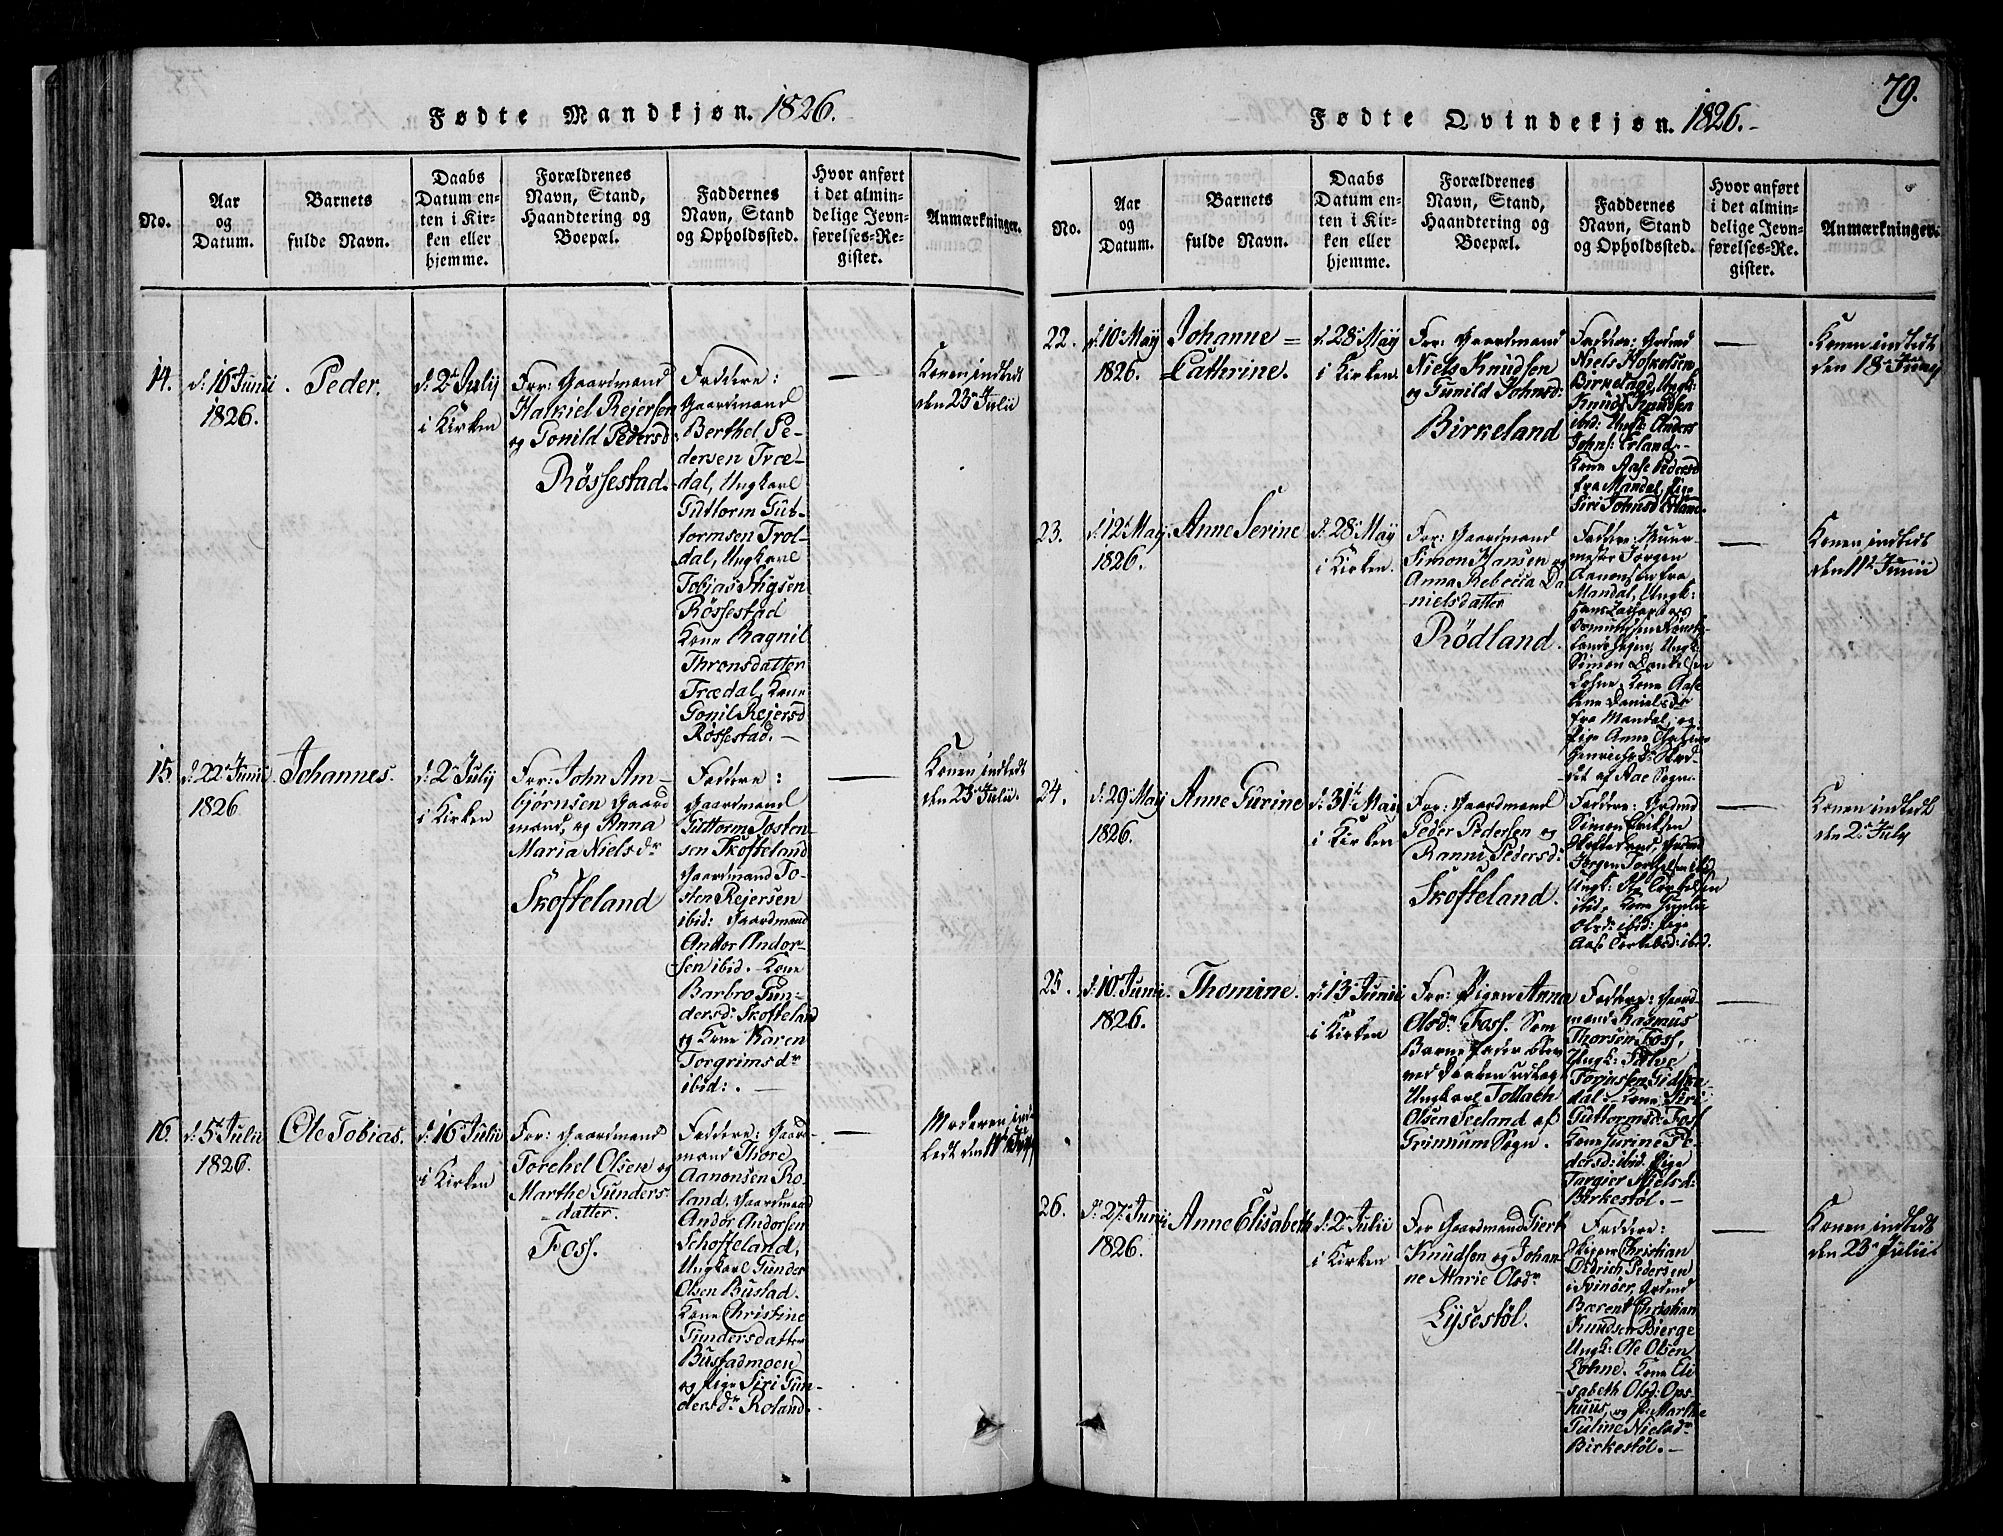 Fødte Mandkjøn. 1826.
No.
Aar
og
Datum.
Barnets
fulde Navn.
Daabs
Datum en-
ten i Kir-
ken eller
hjemme.
Forældrenes
Navn, Stand,
Haandtering og
Boepæl.
Faddernes
Navn, Stand
og Opholdssted.
Hvor anført
i det almin-
delige Jevn-
førelses-Re-
gister.
Anmærkninger.
14.
d: 16 Junii
1826.
Peder.
d: 2 July
i Kirken
For: Gaardmand
Halkiel Rejersen
og Tonild Pedersd:
Røssestad.
Faddere:
Gaardmand
Berthel Pe-
dersen Træ-
dal, Ungkarl
Guttorm Gut-
tormsen Trol-
dal, Ungkarl
Tobias Stigsen
Røssestad
Kone Ragnil
Thronsdatter
Trædal, Kone
Gonil Rejersd
Røssestad.
Konen indledt
den 23 Julii
15.
d: 22 Junii
1826
Johannes.
d: 2 July
i Kirken
For: John Am-
bjørnsen Gaard
mand, og Anna
Maria Nielsdr
Skofteland
Faddere:
Gaardmand
Guttorm Tosten-
sen Skofteland
Gaardmand To-
sten Rejersen
ibid: Gaardmand
Andor Andor-
sen ibid. Kone
Barbro Gun-
dersd: Skofteland
og Kone Karen
Torgrimsdr
ibid:
Konen indledt
den 23 Julii.
16.
d: 5 Julii
1826.
Ole Tobias.
d: 16 Julii
i Kirken
For: Gaardmand
Torchel Olsen og
Marthe Gunders-
datter.
Foss.
Faddere: Gaard-
mand Thore
Aanonsen Ro-
land, Gaardmand
Andor Andorsen
Schofteland,
Ungkarl Gunder
Olsen Bustad.
Kone Christine
Gundersdatter
Bustadmoen
og Pige Siri Gun-
dersdr Roland.
Moderen ind-
ledt den
79.
Fødte Qvindekjøn. 1826.
No.
Aar
og
Datum.
Barnets
fulde Navn.
Daabs
Datum en-
ten i Kir-
ken eller
hjemme.
Forældrenes
Navn, Stand,
Haandtering og
Boepæl.
Faddernes
Navn, Stand
og Opholdssted.
Hvor anført
i det almin-
delige Jevn-
førelses-Re-
gister.
Anmærkninger.
22.
d: 10 May
1826.
Johanne =
= Cathrine.
d. 28 May
i Kirken.
For: Gaardmand
Niels Knudsen
og Gunild Johnsd:
Birkeland
Faddere:
Niels
Birkeland, Ungk:
Knud Knudsen
ibid: Ungk: Anders
Johns: Erland.
Kone Aase Pedersd
fra Mandal, Pige
Siri Johnsd Erland.
Konen indledt
den 18 Juny
23.
d: 12 May
1826.
Anne Serine
d: 28 May
i Kirken.
For: Gaardmand
Simon Hansen og
Anna Rebecca Da
nielsdatter
Rødland.
Faddere: Muur-
mester Jørgen
Aanonsen fra
Mandal, Ungk:
Simon Danielsen
Lohne, Kone Aase
Danielsdr
fra Mandal, og
Pige Anne
af Aae Sogn.
Konen indledt
den 11 Junii
24.
d: 29 May
1826.
Anne Gurine
d: 31 Mai
i Kirken
For: Gaardmand
Peder Pedersen og
Ranni Pedersd:
Skofteland.
Faddere: Grdmd
Simon Eriksen
Skofteland, Grdmd
Jørgen Torkelsen ibid
Ungk:
ibid. Kone
Olsd: ibid: Pige
Aase Torkelsd: ibid.
Konen indledt
den 2 July
25.
d: 10 Junii
1826.
Thomine.
d: 13 Junii
i Kirken
For: Pigen Anna
Olsdr Foss. Som
Barne Fader blev
ved Daaben udlagt
Ungkarl Tollach
Olsen Seeland af
Grimum Sogn.
Faddere: Gaard-
mand Rasmus
Thorsen Foss,
Ungk: Salve
Torjussen
dal. Kone Siri
Guttormsd: Foss
Kone Gurine Pe-
dersd: ibid. Pige
Targier Nielsd:
Birkestøl.
26.
d: 27 Junii
1826.
Anne Elisabeth
d: 2 Julii
i Kirken
For Gaardmand Giert
Knudsen og Johan-
ne Marie Olsdr
Lysestøl.
Faddere:
Skipper Christian
Didrich Pedersen
i Svinøer, Grdmd
Bærent Christian
Knudsen Bierge
Ungk: Ole Olsen
Lohne. Kone Eli
sabeth Olsd: Ops-
huus, og P: Marthe
Guline Nielsdr
Birkestøl.
Konen indledt
den 23 Julii